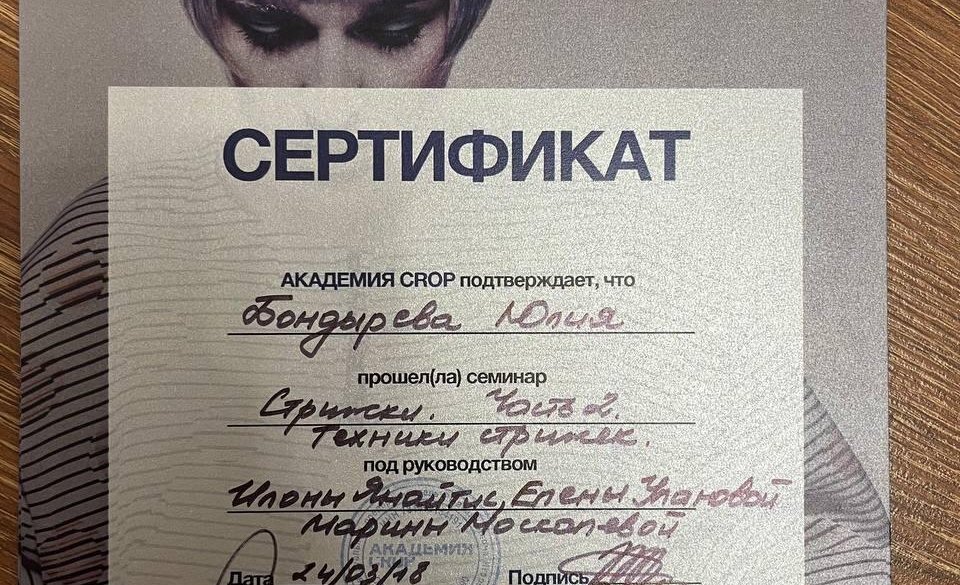 СЕРТИФИКАТ
АКАДЕМИЯ CROP подтверждает, что
Бондырева Юлия
прошел(ла) семинар
Стрижки. Часть 2.
Техники стрижек.
под руководством
Илоны Янайтис, Елены Улановой
Марины Москалевой
АКАДЕМИЯ
CROP
Дата 24/03/18 Подпись